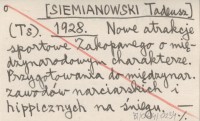 [SIEMIANOWSKI Tadeusz]
(TS). 1928. Nowe atrakcje
sportowe Zakopanego o mię-
dzynarodowym charakterze.
Przygotowania do międzynar.
zawodów narciarskich i
hippicznych na śniegu. —